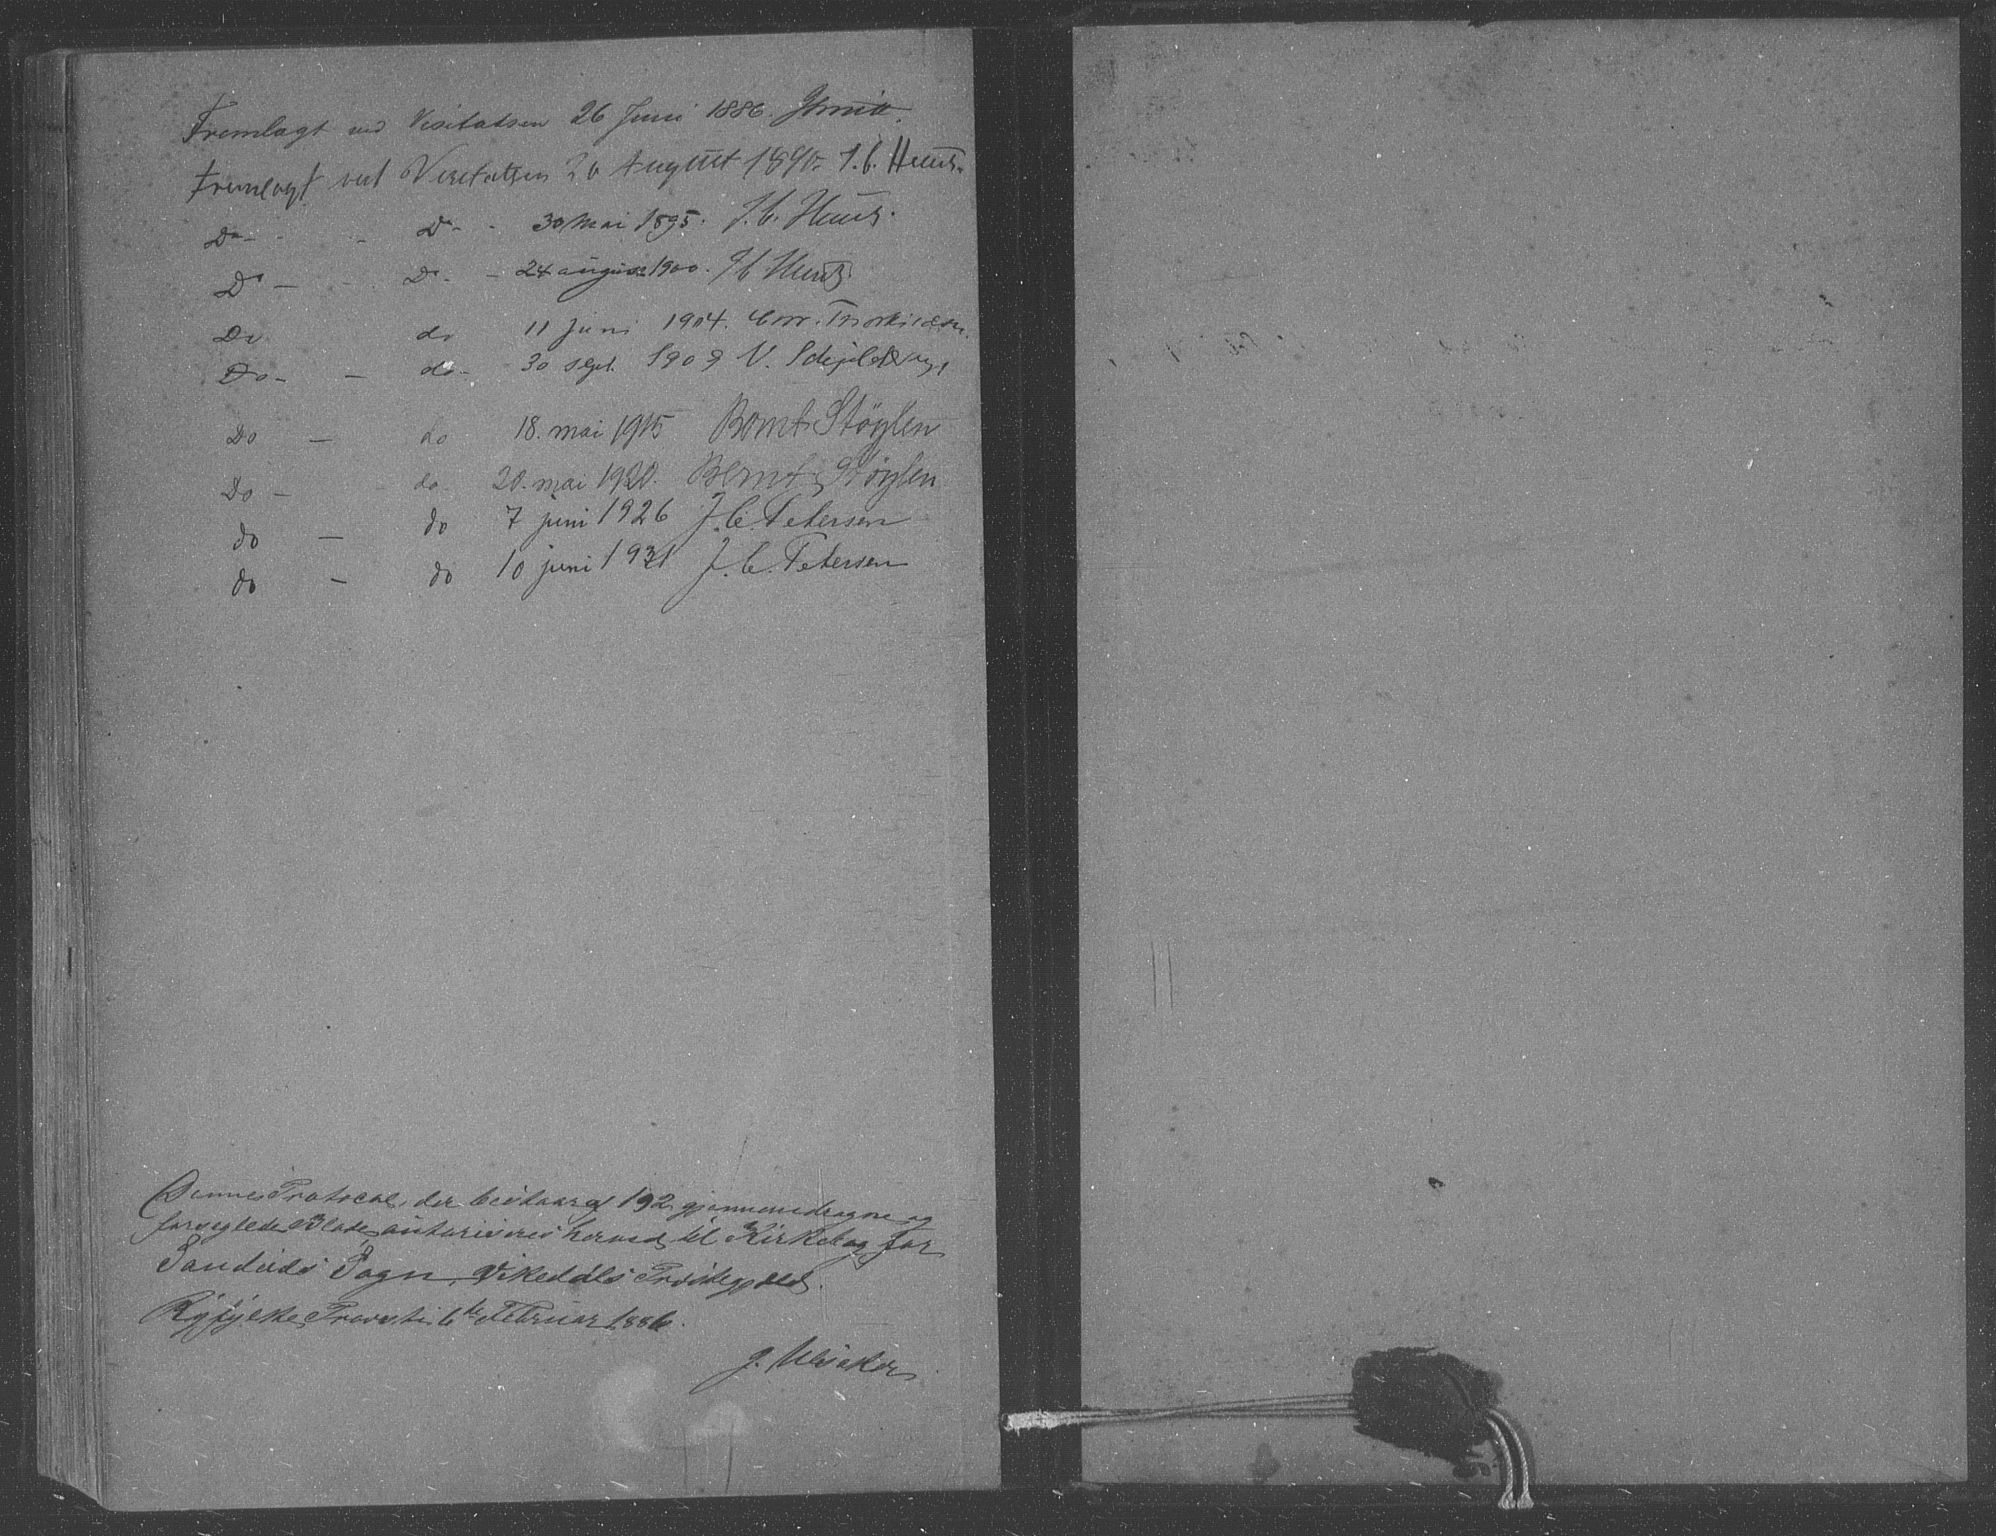 Fremlagt ved Visitatsen 26 Juni 1886.
Fremlagt ved Visitatsen 20 August 1890. J. C. Heuch.
Do - - Do - - 30 Mai 1895. J. C. Heuch.
Do - - Do - - 24 august 1900. J C Heuch
Do do 11 Juni 1904. Chr. Thorkildsen.
Do - - do - 30 sept. 1909 V. Skjelderup
Do - do 18. mai 1915 Bernt Støylen
Do - do. 20. mai 1920. Bernt Støylen
do - do 7 juni 1926 J. C. Petersen
do - do 10 juni 1931 J. C. Petersen
Denne Protocol, der bestaar af 192 gjennemdragne og
forseglede Blade, autoriseres herved til Kirkebog for
Sandeids Sogn, Vikedals Præstegjæld.
Ryfylke Provsti 6te Februar 1886.